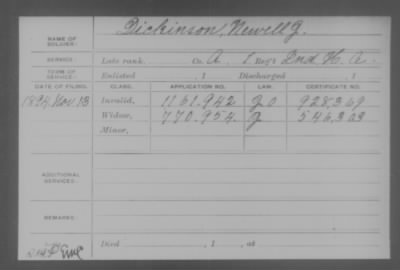 NAME OF SOLDIER: Dickinson, Newell G.
SERVICE: Late rank Co. A, 1 Reg't Ind. H. A.
TERM OF SERVICE: Enlisted , 1 Discharged , 1
DATE OF FILING. CLASS. APPLICATION NO. LAW. CERTIFICATE NO.
1894 Nov. 13 Invalid, 1161.942 928.369
Widow, 770.954 546.303
Minor,
ADDITIONAL SERVICES:
REMARKS:
Died , 1 , at